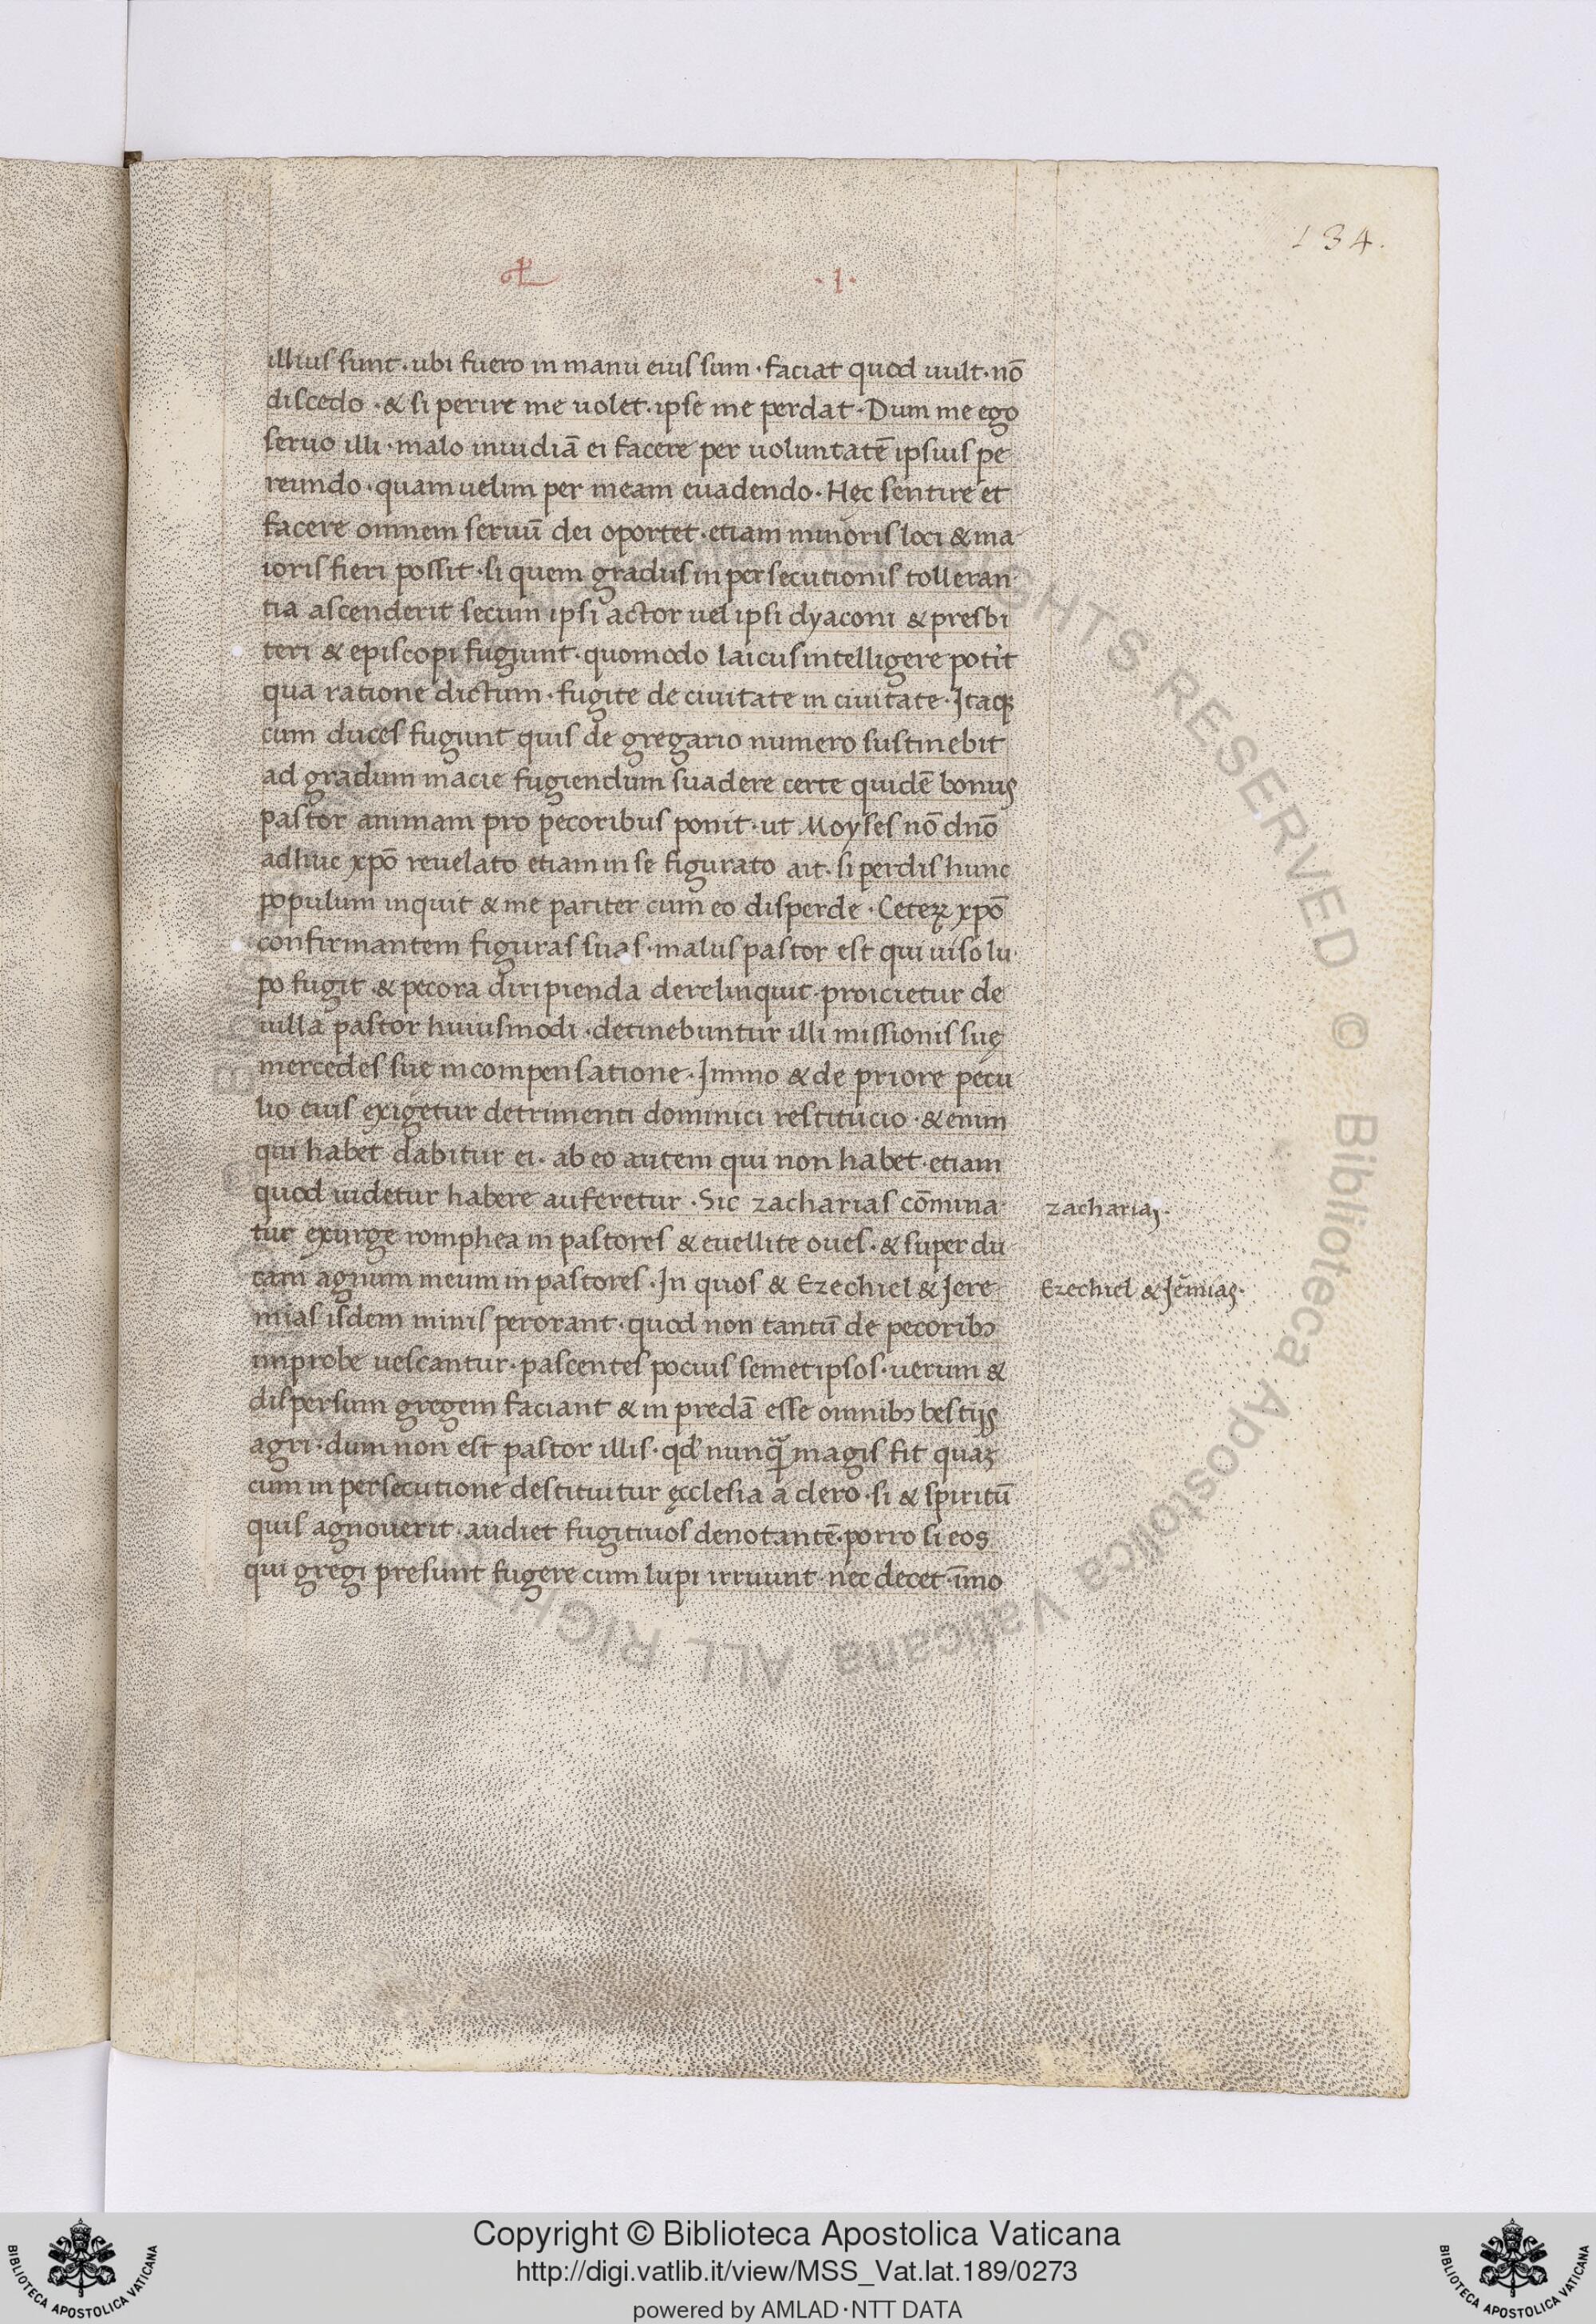 134.
·I·
illius sunt · ubi fuero in manu eius sum · faciat quod uult · nō
discedo · & si perire me uolet · ipse me perdat · Dum me ego
seruo illi · malo inuidiā ei facere per uoluntatē ipsius pe
reundo · quam uelim per meam euadendo · Hęc sentire et
facere omnem seruū dei oportet · etiam minoris loci & ma
ioris fieri possit · si quem gradus in persecutionis tolleran
tia ascenderit secum ipsi actor uel ipsi dyaconi & presbi
teri & episcopi fugiunt · quomodo laicus intelligere potit
qua ratione dictum · fugite de ciuitate in ciuitate · Itaqȝ
cum duces fugiunt quis de gregario numero sustinebit
ad gradum in acie fugiendum suadere certe quidē bonus
pastor animam pro pecoribus ponit · ut Moyses nō dnō
adhuc xpō reuelato etiam in se figurato ait · si perdis hunc
populum inquit & me pariter cum eo disperde · Ceteꝝ xpō
confirmantem figuras suas · malus pastor est qui uiso lu
po fugit & pecora diripienda derelinquit · proicietur de
uilla pastor huiusmodi · detinebuntur illi missionis suę
mercedes sue in compensatione · Immo & de priore pecu
lio eius exigetur detrimenti dominici restitucio · & enim
qui habet dabitur ei · ab eo autem qui non habet · etiam
quod uidetur habere auferetur · Sic zacharias cōmina
zacharias ·
tur exurge romphea in pastores & euellite oues · & super du
cam agnum meum in pastores · In quos & Ezechiel & Jere
Ezechiel & Jēmias ·
mias isdem minis perorant · quod non tantū de pecoribꝫ
improbe uescantur · pascentes pocius semetipsos · uerum &
dispersum gregem faciant & in predā esse omnibꝫ bestijs
agri · dum non est pastor illis · qd̄ nunq̄ magis fit quaꝫ
cum in persecutione destituitur ęcclesia a clero · si & spiritū
quis agnouerit · audiet fugitiuos denotantē · porro si eos
qui gregi presunt fugere cum lupi irruunt nec decet · īmo
Copyright © Biblioteca Apostolica Vaticana
http://digi.vatlib.it/view/MSS_Vat.lat.189/0273
powered by AMLAD·NTT DATA
BIBLIOTECA APOSTOLICA VATICANA
BIBLIOTECA APOSTOLICA VATICANA